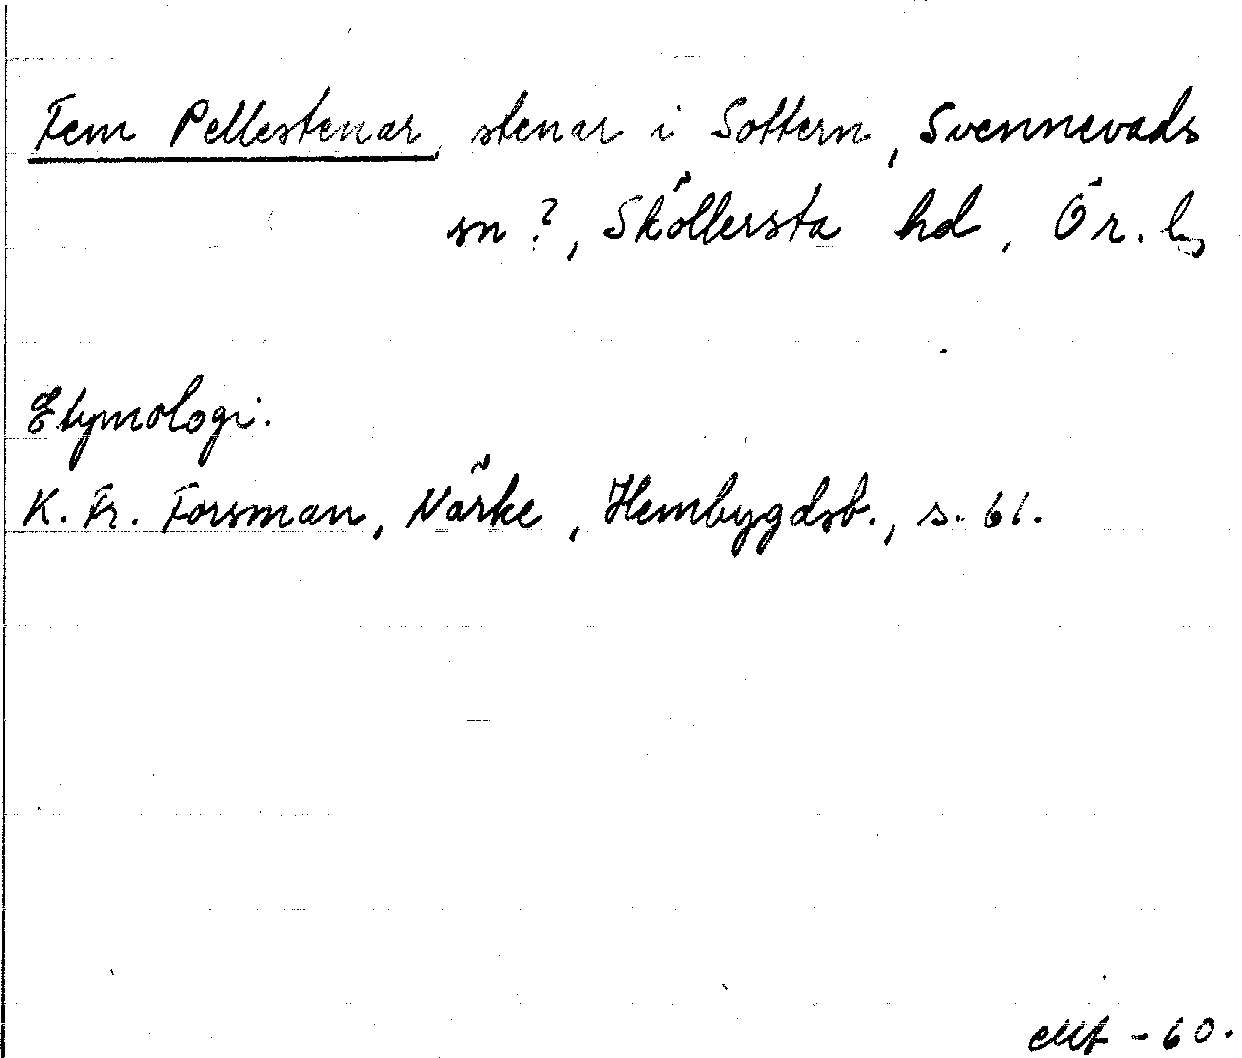 Fem Pellestenar, stenar i Sottern, Svennevads
sn?, Sköllersta hd, Ör. l
Etymologi.
K. Fr. Forsman, Närke, Hembygdsb., s. 61.
-60.